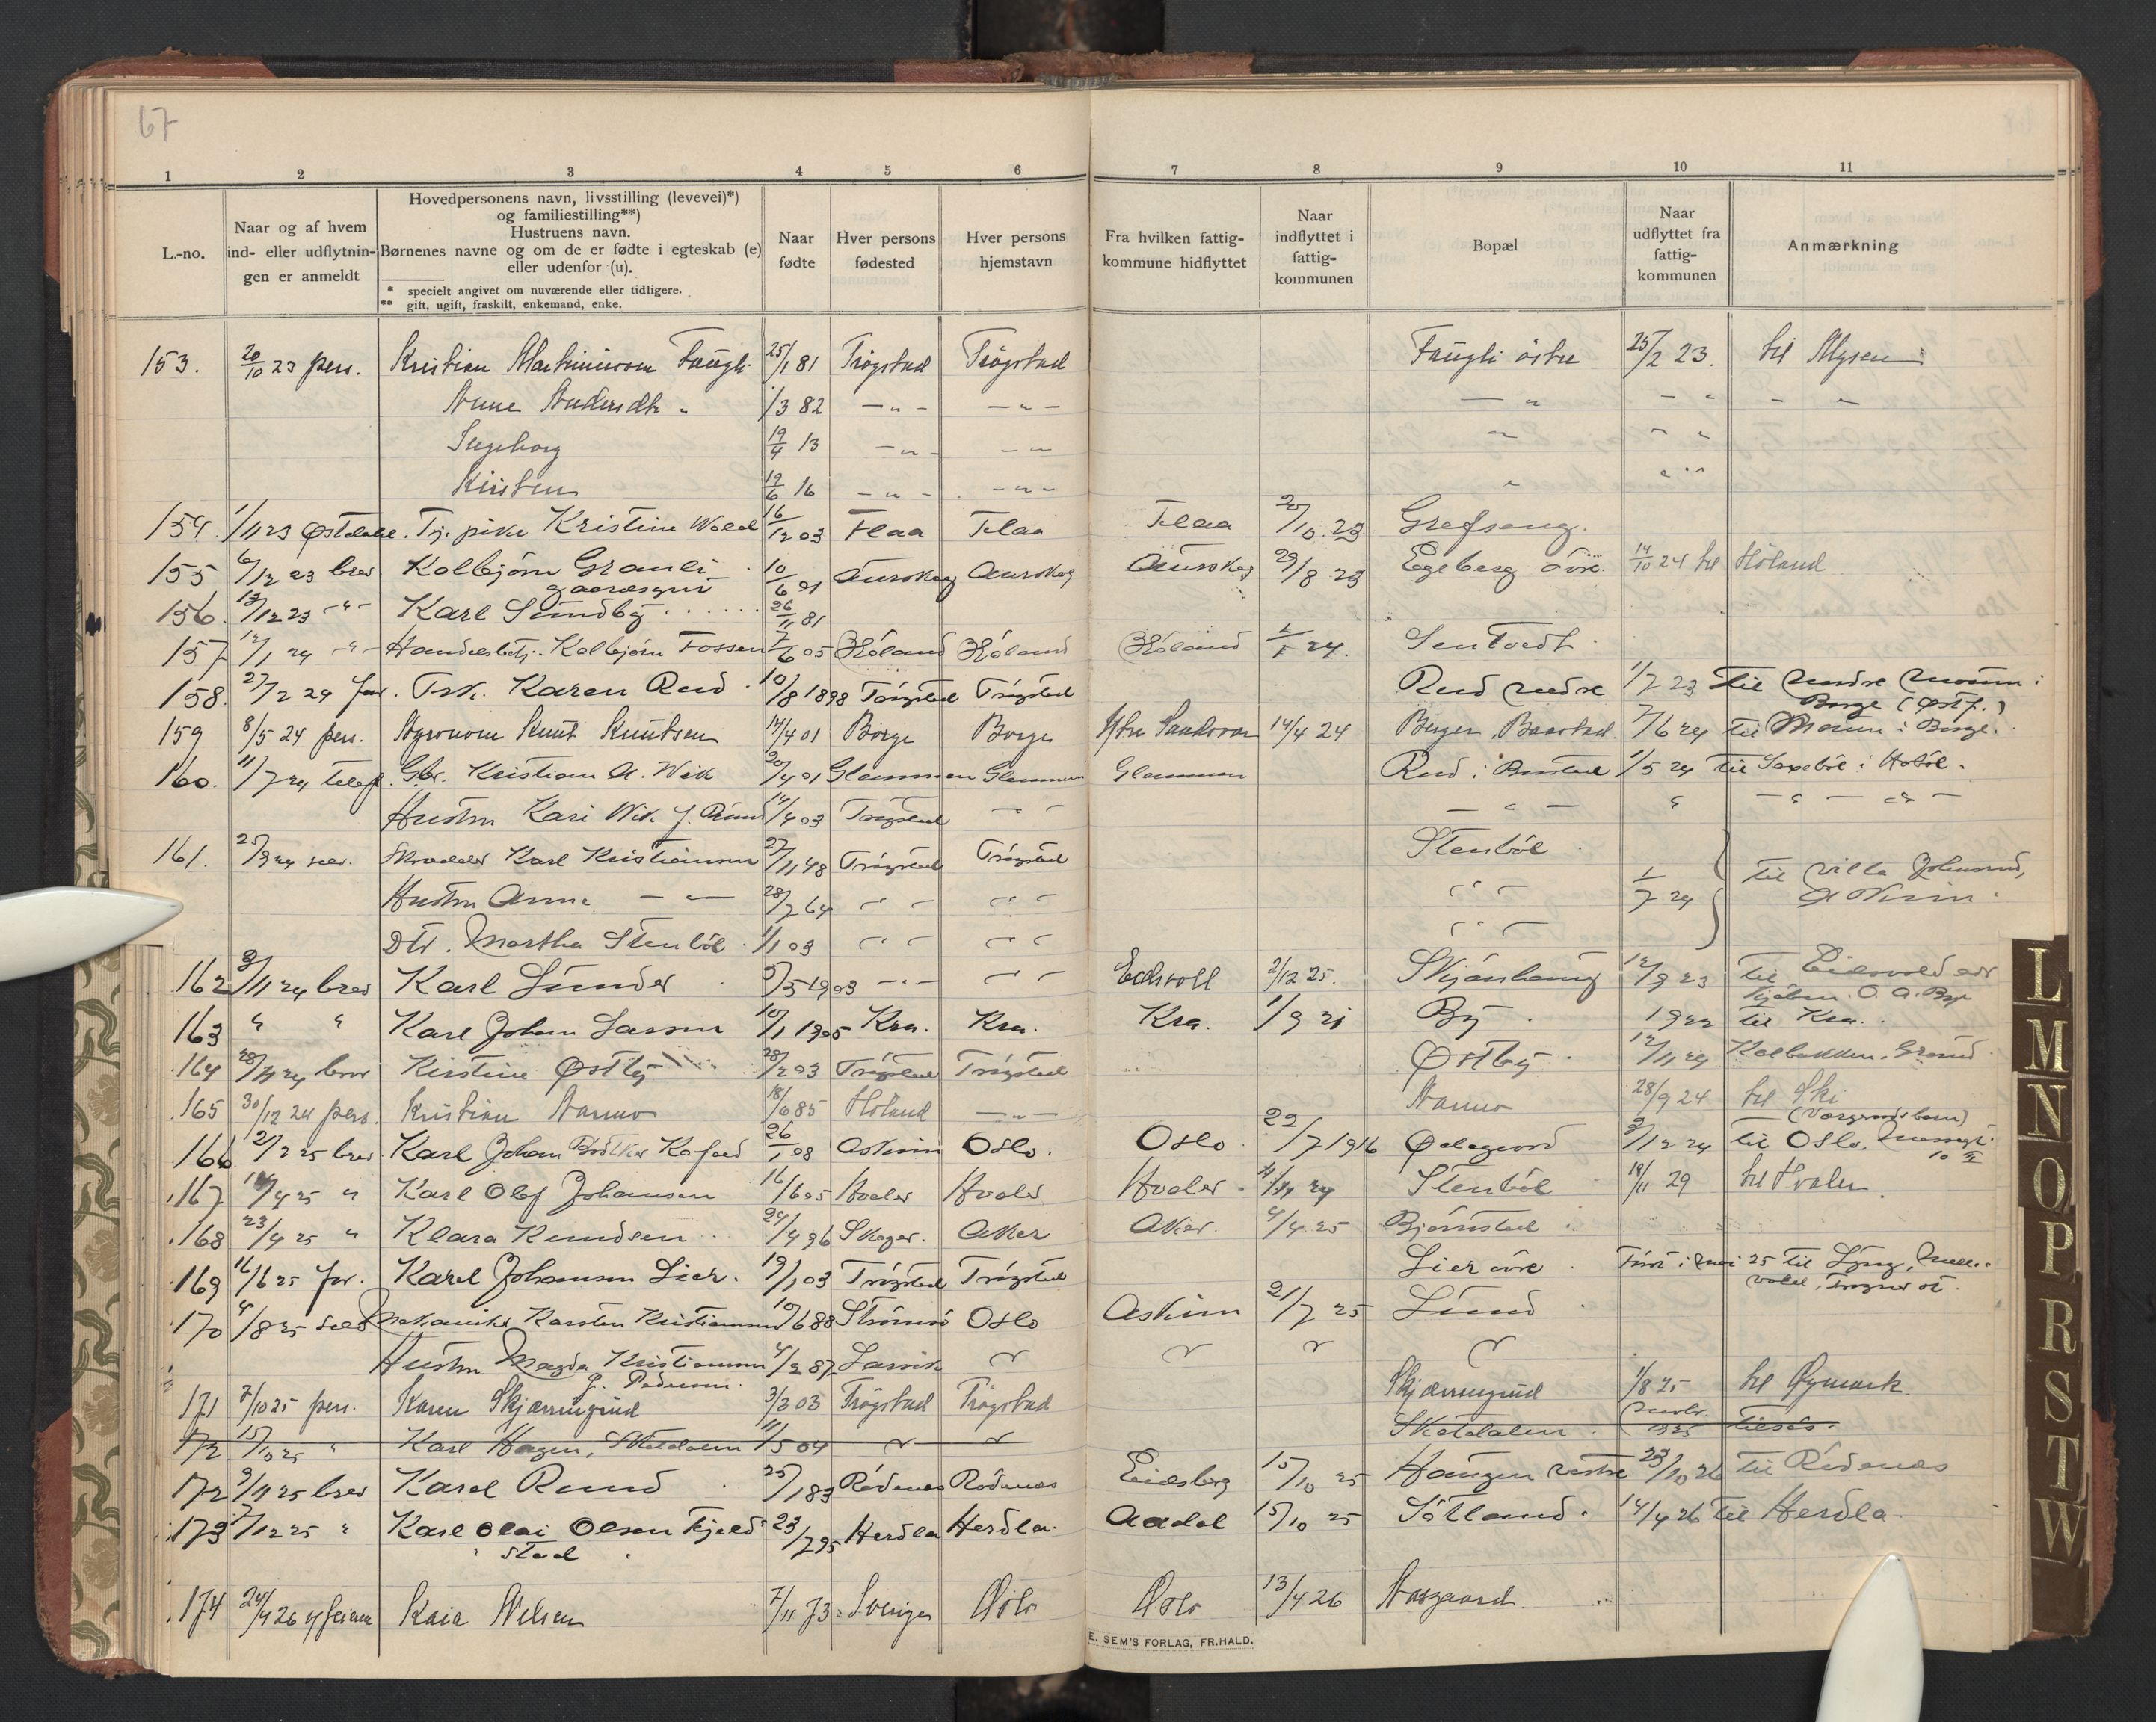 67
1 2 3 4 5 6 7 8 9 10 11
L.-no.
Naar og af hvem ind- eller udflytnin- gen er anmeldt
Hovedpersonens navn, livsstilling (levevei)*)
og familiestilling**)
Hustruens navn.
Børnenes navne og om de er fødte i egteskab (e)
eller udenfor (u).
* specielt angivet om nuværende eller tidligere.
** gift, ugift, fraskilt, enkemand, enke.
Naar fødte
Hver persons fødested
Hver persons hjemstavn
Fra hvilken fattig- kommune hidflyttet
Naar indflyttet i fattig- kommunen
Bopæl
Naar udflyttet fra fattig- kommunen
Anmærkning
153. 20/10 23 pers. Kristian Martinusson Faugli 25/1 81 Trøgstad Trøgstad Faugli østre 25/2 23. til Mysen
Anne Andersdtr " 1/3 82 — " — — " — — " — " — "
Ingeborg 19/4 13 — " — — " " "
Kirsten 19/6 16 — " — — " — " "
154. 1/11 23 Tj. pike Kristine 16/12 03 Flaa Flaa Flaa 20/10 23 Grefseng.
155 6/12 23 brev Kolbjörn Granli 10/6 01 Aurskog Aurskog Aurskog 29/8 23 Egeberg övre. 14/10 24 til Höland
156. 13/12 23 — " — Karl Sundby 26/11 81
157 12/1 24 — " — Handelsbetj. Kolbjörn Fossen 7/6 05 Höland Höland Höland 2/1 24.
158. 27/2 24 Karen Rud 10/8 1898 Trögstad Trögstad Rud nedre 1/7 23 til
Borge (Østf.)
159 8/5 24 pers. Agronom Knut Knutsen 14/4 01 Borge Borge 14/4 24 7/6 24 til Moum i Borge.
160. 11/7 24 telef. Gbr. Kristian A. Wik 20/4 01 Glemmen Glemmen Glemmen Rud i Baastad 1/5 24 til i Hoböl.
Hustru Kari Wik f. 14/4 03 Trögstad — " — " — " — " — " —
161. 25/9 24 selv. Skrædder Karl Kristiansen 27/11 48 Trögstad Trögstad Stenböl
Hustru Anna — — 28/7 64 " " " " " " 1/7 24 til villa
Dtr. Martha Stenböl 1/1 03 " " " " " "
162 3/11 24 brev Karl Sunder 5/5 1903 — " — " " Eidsvoll 2/12 25. Skjönhaug 12/9 23 til Eidsvold
163 " " Karl Johan Larsen 10/1 1905 Kra. Kra. Kra. 1/9 21 By 1922 til Kra.
164 28/11 24 brev Kirstine Østby 28/2 03 Trögstad Trögstad Østby 12/11 24 Kolbakken,
165 30/12 24 pers. Kristian 18/6 85 Höland — " — 28/9 24 til Ski
166 2/2 25 brev Karl Johan Kofoed 26/1 08 Askim Oslo. Oslo 22/7 1916 Ødegaard 3/12 24 til Oslo,
167 16/4 25 " Karl Olaf Johansen 16/6 05 Hvaler Hvaler Hvaler Stenböl 19/11 29 til Hvaler
168 23/4 25 " Klara Knudsen 24/4 96 Skoger. Aker Aker. 4/4 25 Björnstad
169 16/6 25 Karl Johansen Lier. 19/1 03 Trögstad Trögstad Lier övre i mai 25 til
170 4/8 25 selv Mekaniker Karsten Kristiansen 10/6 88 Strömsö Oslo Askim 21/7 25 Lund
Hustru Magda Kristiansen 4/2 87 Larvik " " " "
f. Pedersen.
171 7/10 25 pers. Karen Skjærringrud 3/3 03 Trøgstad Trøgstad Skjærringrud 1/8 25 til Øymark.
172 15/10 25 " Karl Hagen, Skotdalen 11/5 04 " " Skotdalen 1925 tilsös.
172 9/11 25 brev Karl Rund 25/1 83 Rödenes Rödenes Eidsberg 15/10 25 Haugen vestre 23/10 26 til Rödenes
173 17/12 25 " Karl Olai Olsen Fjeld- 23/7 95 Herdla Herdla. Aadal 15/10 25 Sötland. 14/4 26 til Herdla
stad
174 24/4 26 Kaia Nelsen 7/11 73 Sverige Oslo Oslo 13/4 26 Aasgaard
E. SEM'S FORLAG, FR.HALD.
L
M
N
O
P
R
S
T
W